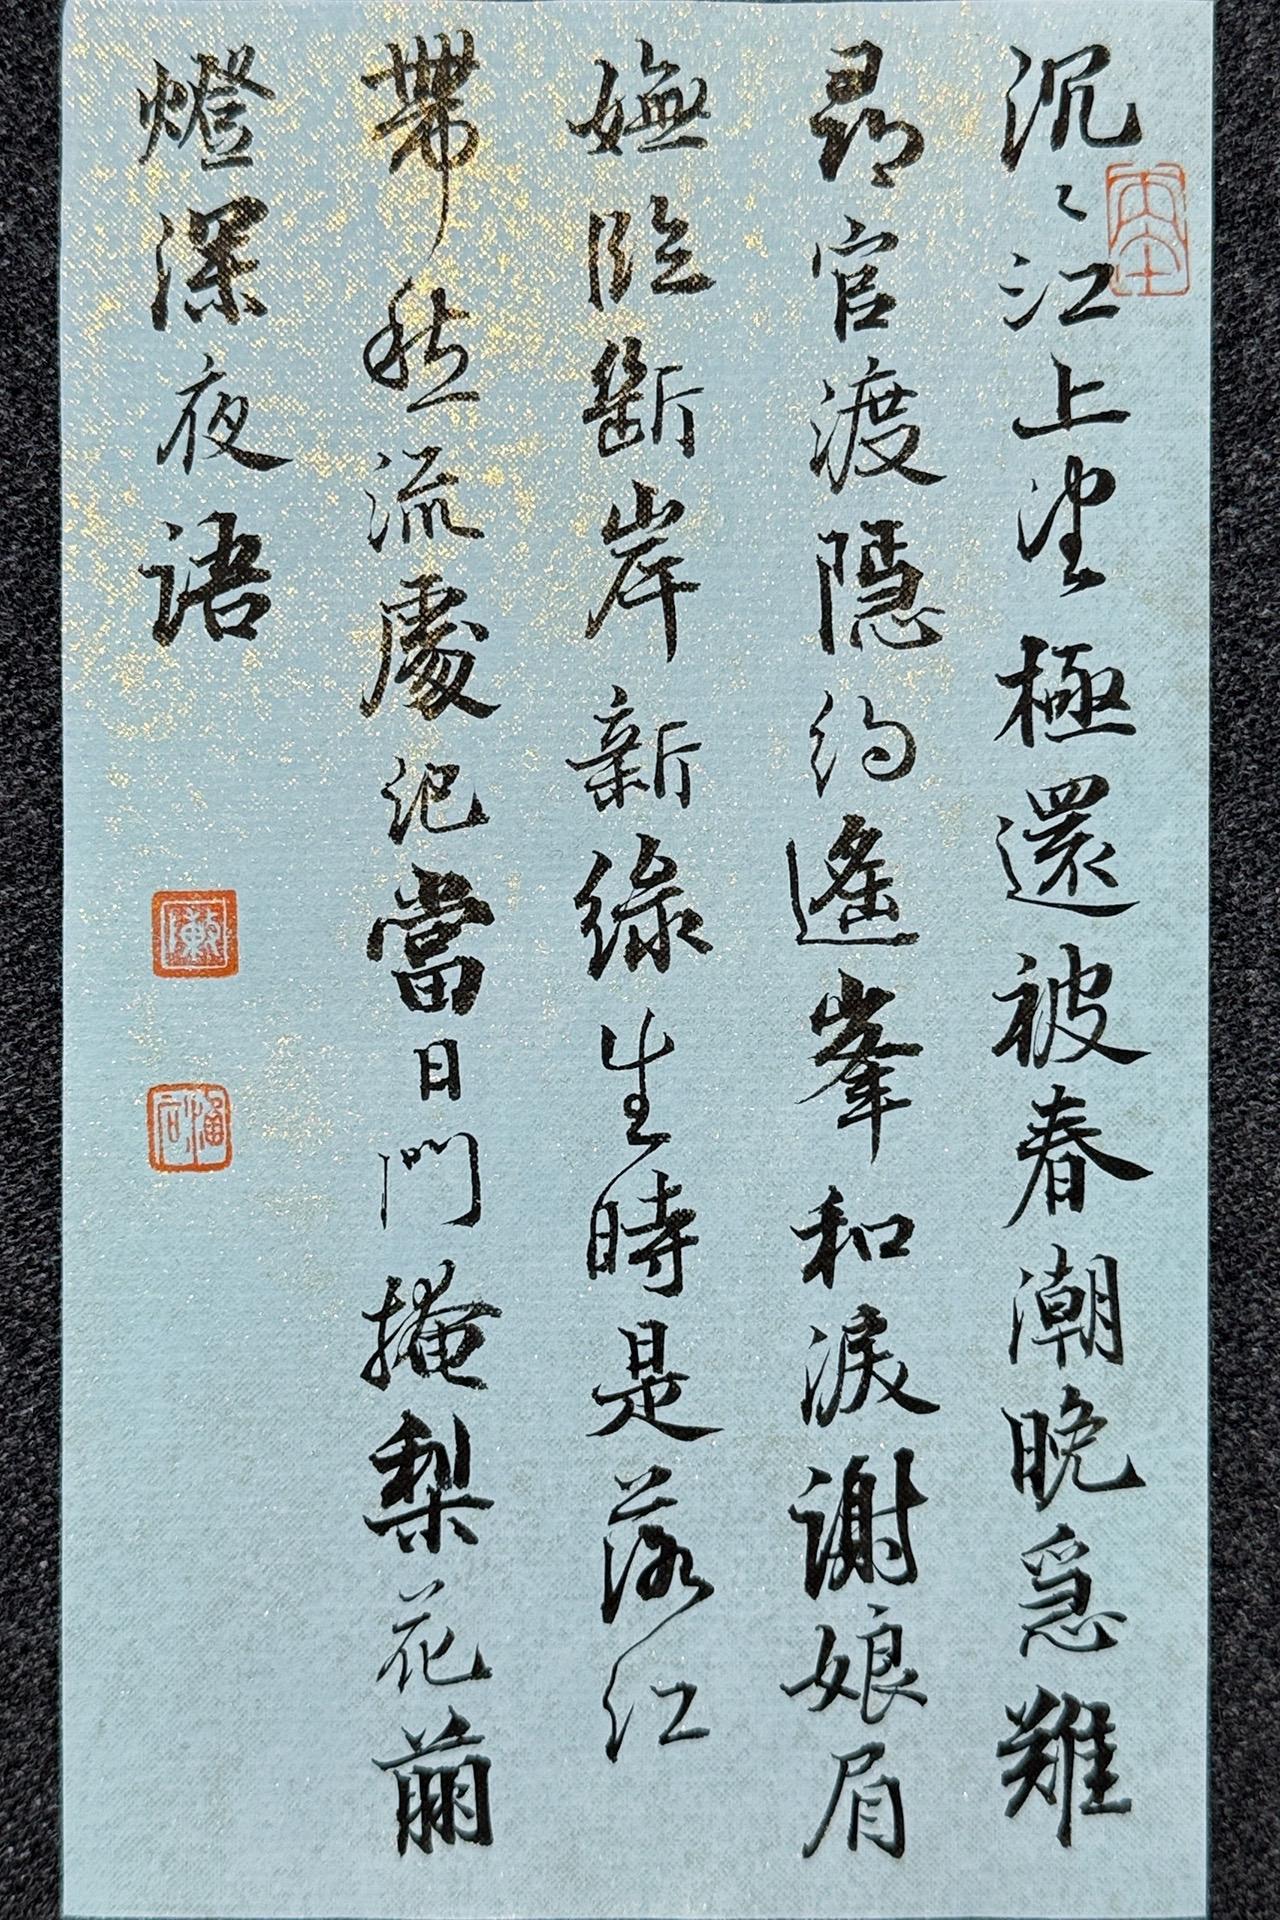 沉〻江上望極還被春潮晚急難
尋官渡隱約遙峯和淚謝娘眉
嫵臨斷岸新綠生時是落紅
帶愁流處記當日門掩梨花剪
燈深夜語